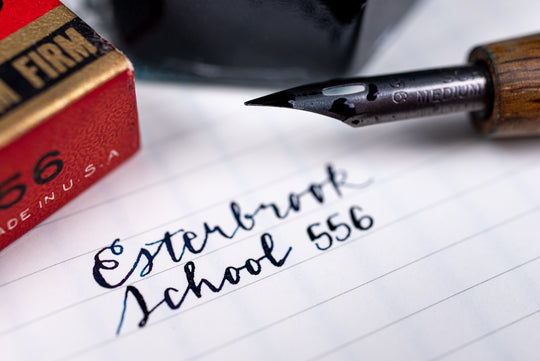 FIRM
56
MADE IN U.S.A
MEDIUM
Esterbrook
School 556